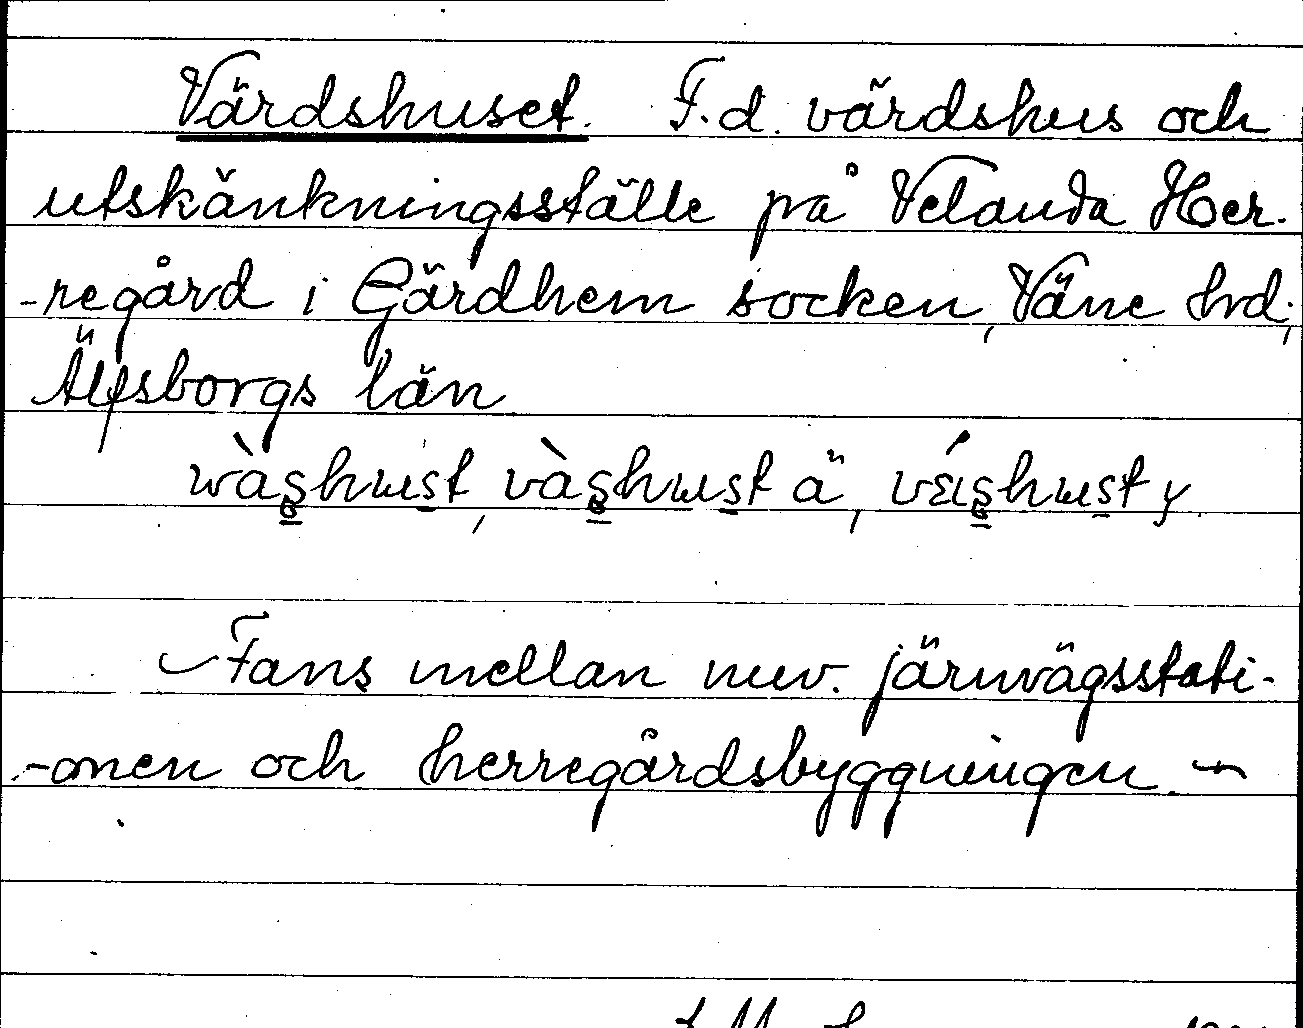 Värdshuset. F.d. värdshus och
utskänkningsställe på Velanda Her-
-regård i Gärdhem socken, Väne hrd;
Älfsborgs län
wàs̱hust, vàs̱hust ä, véis̱hust y.
Fans mellan nuv. järnvägsstati-
-onen och herregårdsbyggningen.